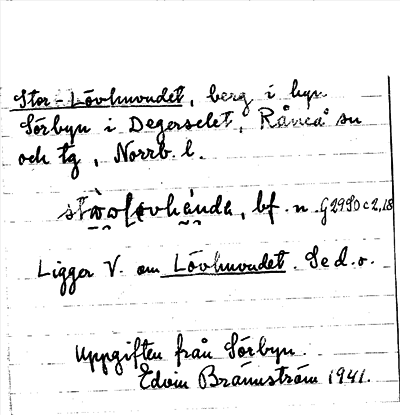 Stor-Lövhuvudet, berg i byn
Sörbyn i Degerselet, Råneå sn
och tg, Norrb. l.
bf. n. G2990c2,18
Ligger V. om Lövhuvudet. Se d. o.
Uppgiften från Sörbyn.
Edvin Brännström 1941.